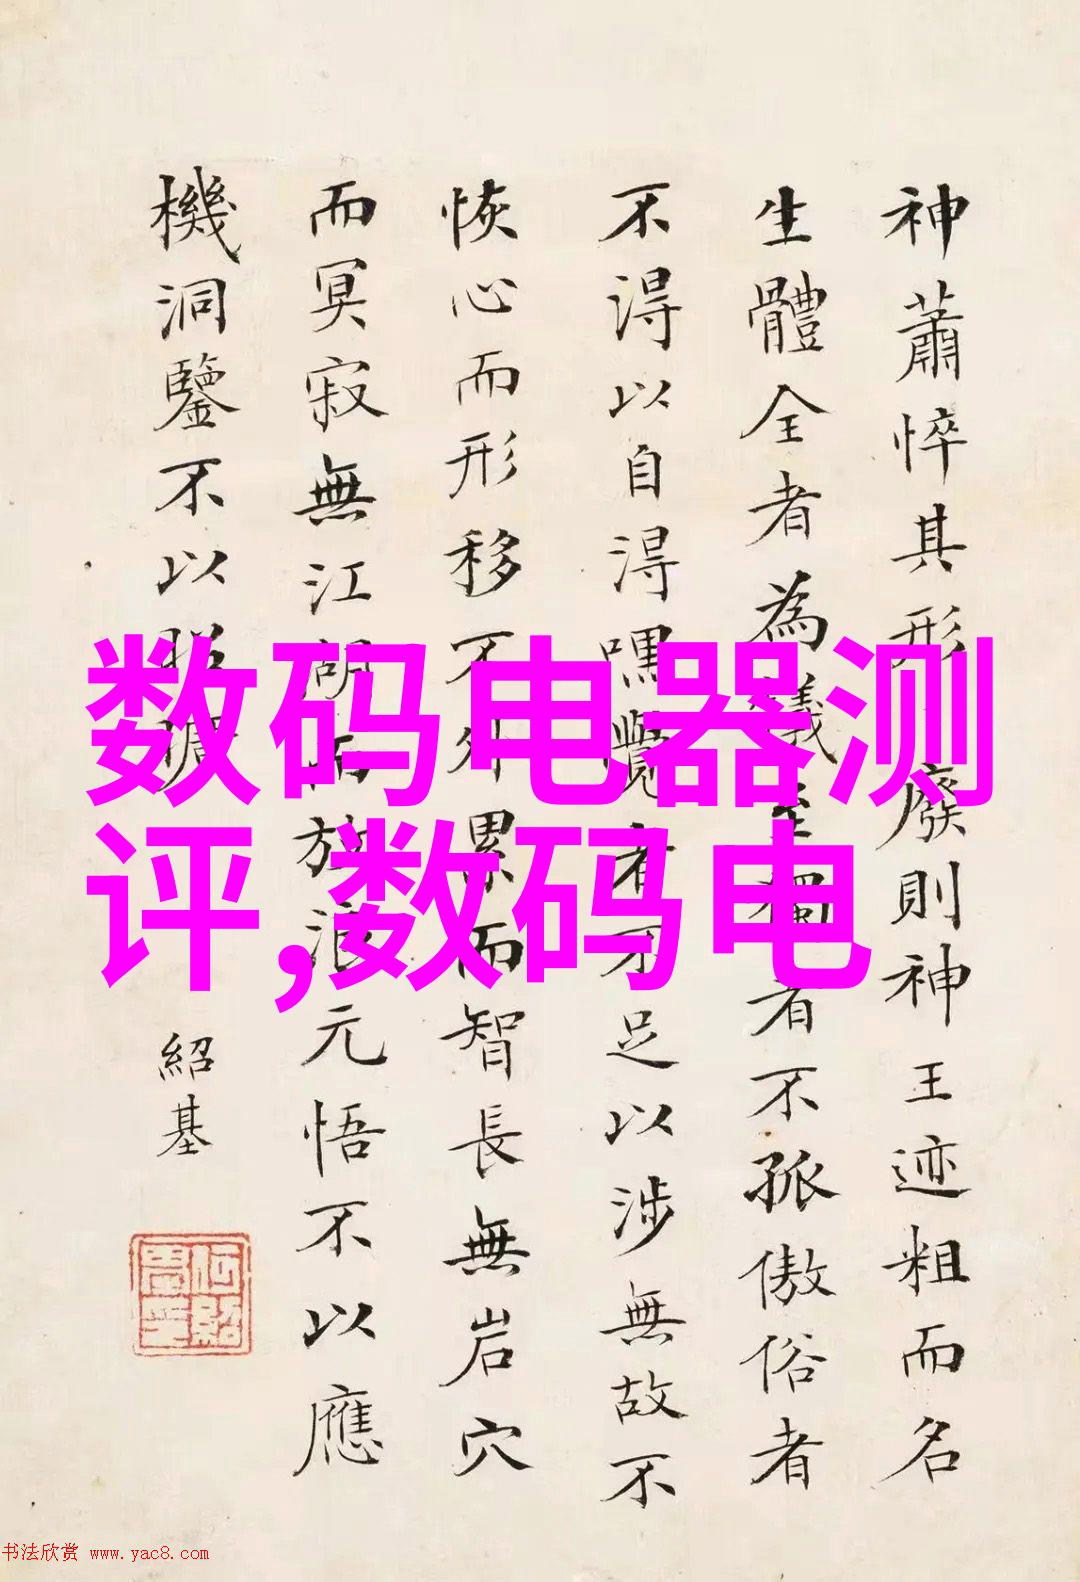 神蕭悴其形廢則神王迹粗而名
生體全者為議至獨者不孤傲俗者
不得以自得嘿覺者不足以涉無故不
恢心而形移不外累而智長無岩穴
而冥寂無江湖而放浪元悟不以應
機洞鑒不以
紹基
数码电器测
评,数码电
书法欣赏 www.yac8.com